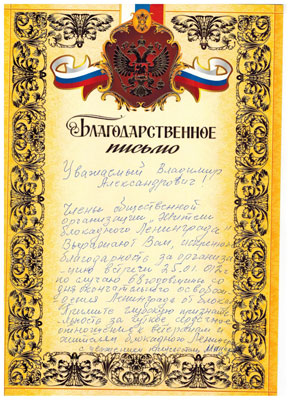 Благодарственное
письмо
Уважаемый Владимир
Александрович!
Члены общественной
организации "Жители
блокадного Ленинграда"
Выражают Вам, искреннюю
благодарность за организа-
цию встречи 25.01.012г
по случаю годовщины со
дня окончательного освобож-
дения Ленинграда от блока
Примите глубокую признате
льность за чуткое сердечное
отношение к ветеранам и
жителям блокадного Ленингр
с уважением